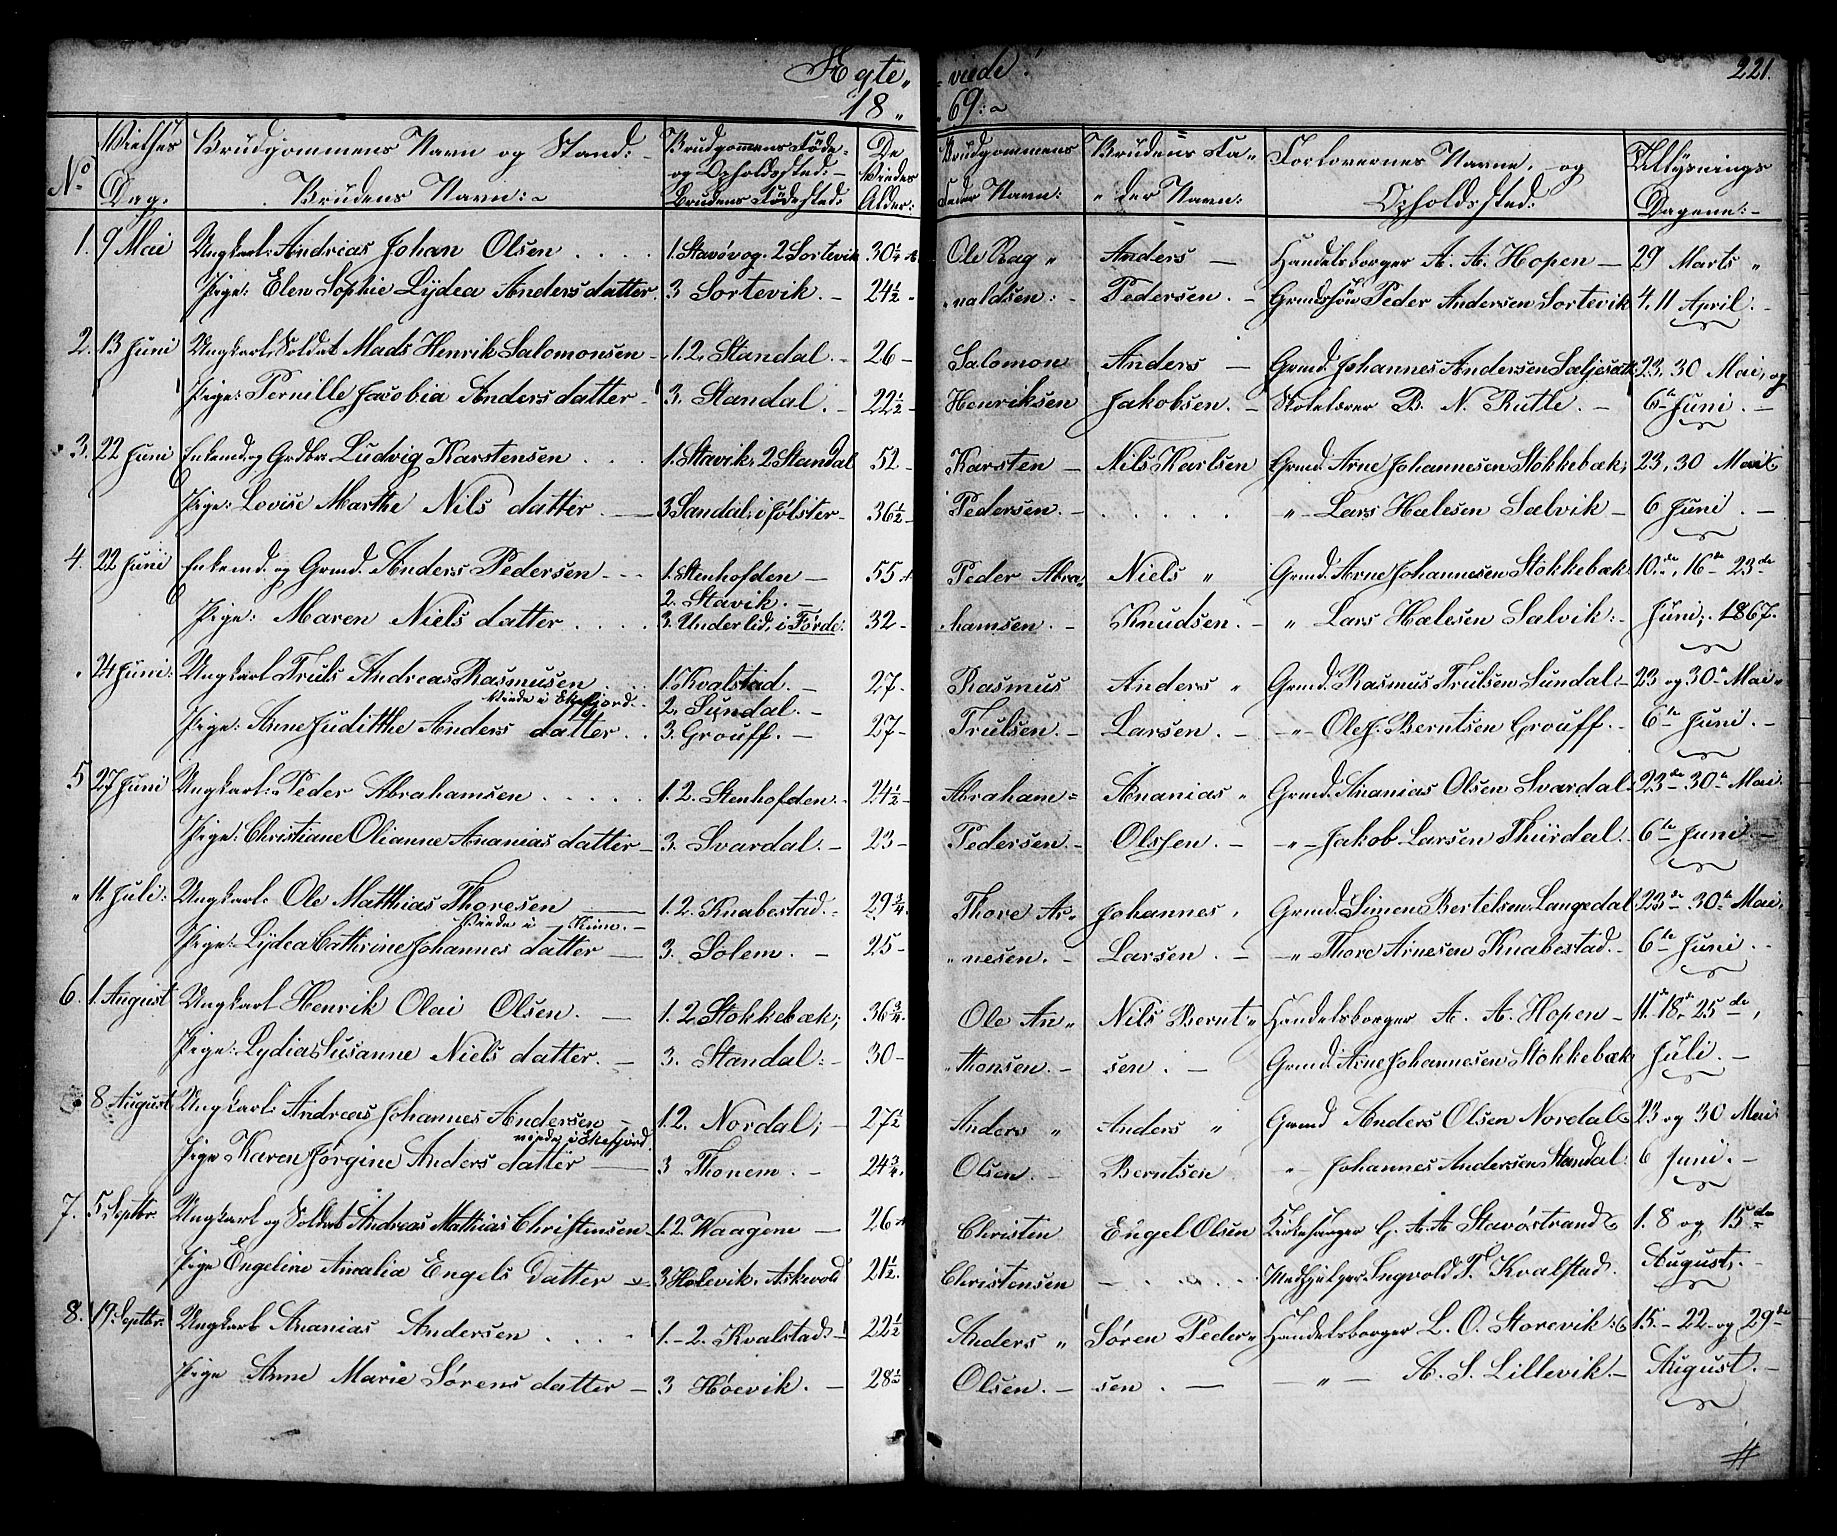 Ægte„ viede. 221.
18„ „69:
No Vielses Dag. Brudgommens Navn og Stand:- Brudens Navn: Brudgommens Føde- og Opholdssted:- Brudens Fødested: De Viedes Alder: Brudgommens Fader Navn: Brudens Fa„ „der Navn: Forlovernes Navne, og Opholdssted: Tillysnings Dagene:-
1. 9 Mai Ungkarl: Andreas Johan Olsen .... 1. Stavø og 2 Sortevik 30¼ Ole Rag„ Anders — Handelsborger A. A. Hopen — 29 Marts „
Pige: Elen Sophie Lydea Andersdatter. 3 Sortevik. - 24½ - naldsen: - Pedersen. - Grmdssøn Peder Andersen Sortevik 4, 11 April. -
2. 13 Juni Ungkarl Soldat Mads Henrik Salomonsen - 1. 2. Standal. - 26 - Salomon Anders — Grmd. Johannes Andersen 23, 30 Mai, og
Pige: Pernille Jacobia Andersdatter - 3. Standal. - 22½ - Henriksen Jakobsen. - Skolelærer B. N. Rutle. - 6te Juni. -
3. 22 Juni Enkemd. og Grdbr. Ludvig Karstensen ... 1. Stavik, 2 Standal 52 - Karsten - Nils Karlsen Grmd. Arne Johannesen Stokkebæk, 23, 30 Mai
Pige: Lovise Marthe Nils datter. — 3 Sandal i Jølster - 36½ - Pedersen. - ..... „ - Lars Hælesen Sælvik - 6 Juni. -
4. 22 Juni Enkemd. og Grmd. Anders Pedersen --- 1. Stenhofden — 55 Peder Abra, Niels „ Grmd. Arne Johannesen Stokkebæk, 10de, 16de 23de
2. Stavik. -
Pige: Maren Niels datter .... 3. Underlid, i Førde. 32 - hamsen. - Knudsen. - „ Lars Hælesen Salvik. - Juni, 1867.
„ 24 Juni: Ungkarl Truls Andreas Rasmusen. 1. Kvalstad. - 27. Rasmus Anders „ Grmd. Rasmus Trulsen Sundal - 23 og 30te Mai
Viede i Skefjord. 2. Sundal. -
Pige: Anne Juditthe Anders datter .. 3. Grouff. - 27 - Trulsen. - Larsen. - - „ - Ole J. Berntsen Grouff. - 6te Juni. -
5 27 Juni Ungkarl: Peder Abrahamsen ..... 1. 2. Stenhofden. - 24½ - Abraham = Ananias „ Grmd. Ananias Olsen Svardal. 23de 30te Mai.
Pige: Christiane Olianne Ananias datter - 3. Svardal. - 23 - Pedersen. - Olssen. - - „ - Jakob Larsen Thürdal. 6te Juni. -
„ 11. Juli: Ungkarl. Ole Matthias Thoresen — 1. 2. Knabestad. - 29¾. Thore Ar„ Johannes, Grmd. Simen Bertelsen Langedal 23de 30te Mai,
Viede i Kinn. -
Pige: Lydea Cathrine Johannes datter — 3. Solem. - 25 - „nesen. - Larsen. - - „ - Thore Arnesen Knabestad. - 6te Juni. -
6. 1. August Ungkarl Henrik Olai Olsen. — 1. 2 Stokkebæk; 36¾. Ole An„ Nils Bernt„ Handelsborger A. A. Hopen - 11te 18de 25de,
Pige: Lydia Susanne Niels datter. - 3. Standal. - 30 - „thonsen. - sen. - Grmd. Arne Johannesen Stokkebæk Juli. -
8 August Ungkarl: Andreas Johannes Andersen - 1. 2. Nordal; - 27½ Anders „ Anders „ Grmd Anders Olsen Nordal 23 og 30 Mai
viede i Skefjord.
Pige Karen Jørgine Anders dattër — 3 Thonem. - 24¾. Olsen. - Berntsen „ - Johannes Andersen Standal. 6 Juni. -
7. 5. Septbr. Ungkarl og Soldat Andreas Mathias Christensen 1. 2. Waagene — 26 Christen Engel Olsen Kirkesanger G. A. A. Stavøstrand 1. 8 og 15de
Pige Engeline Amalia Engels datter 3 Holevik, Askevold 21½. Christensen - .... Medhjelper Ingvold T. Kvalstad. August, -
8. 19. Septbr. Ungkarl Ananias Andersen .... 1. - 2. Kvalstad - 22½ Anders „ Søren Peder„ Handelsborger L. O. Storevik. 15. - 22 - og 29de
Pige Anne Marie Sørens datter - 3 Høevik. - 28½ Olsen. - sen. — - „ - A. S. Lillevik. - August. -